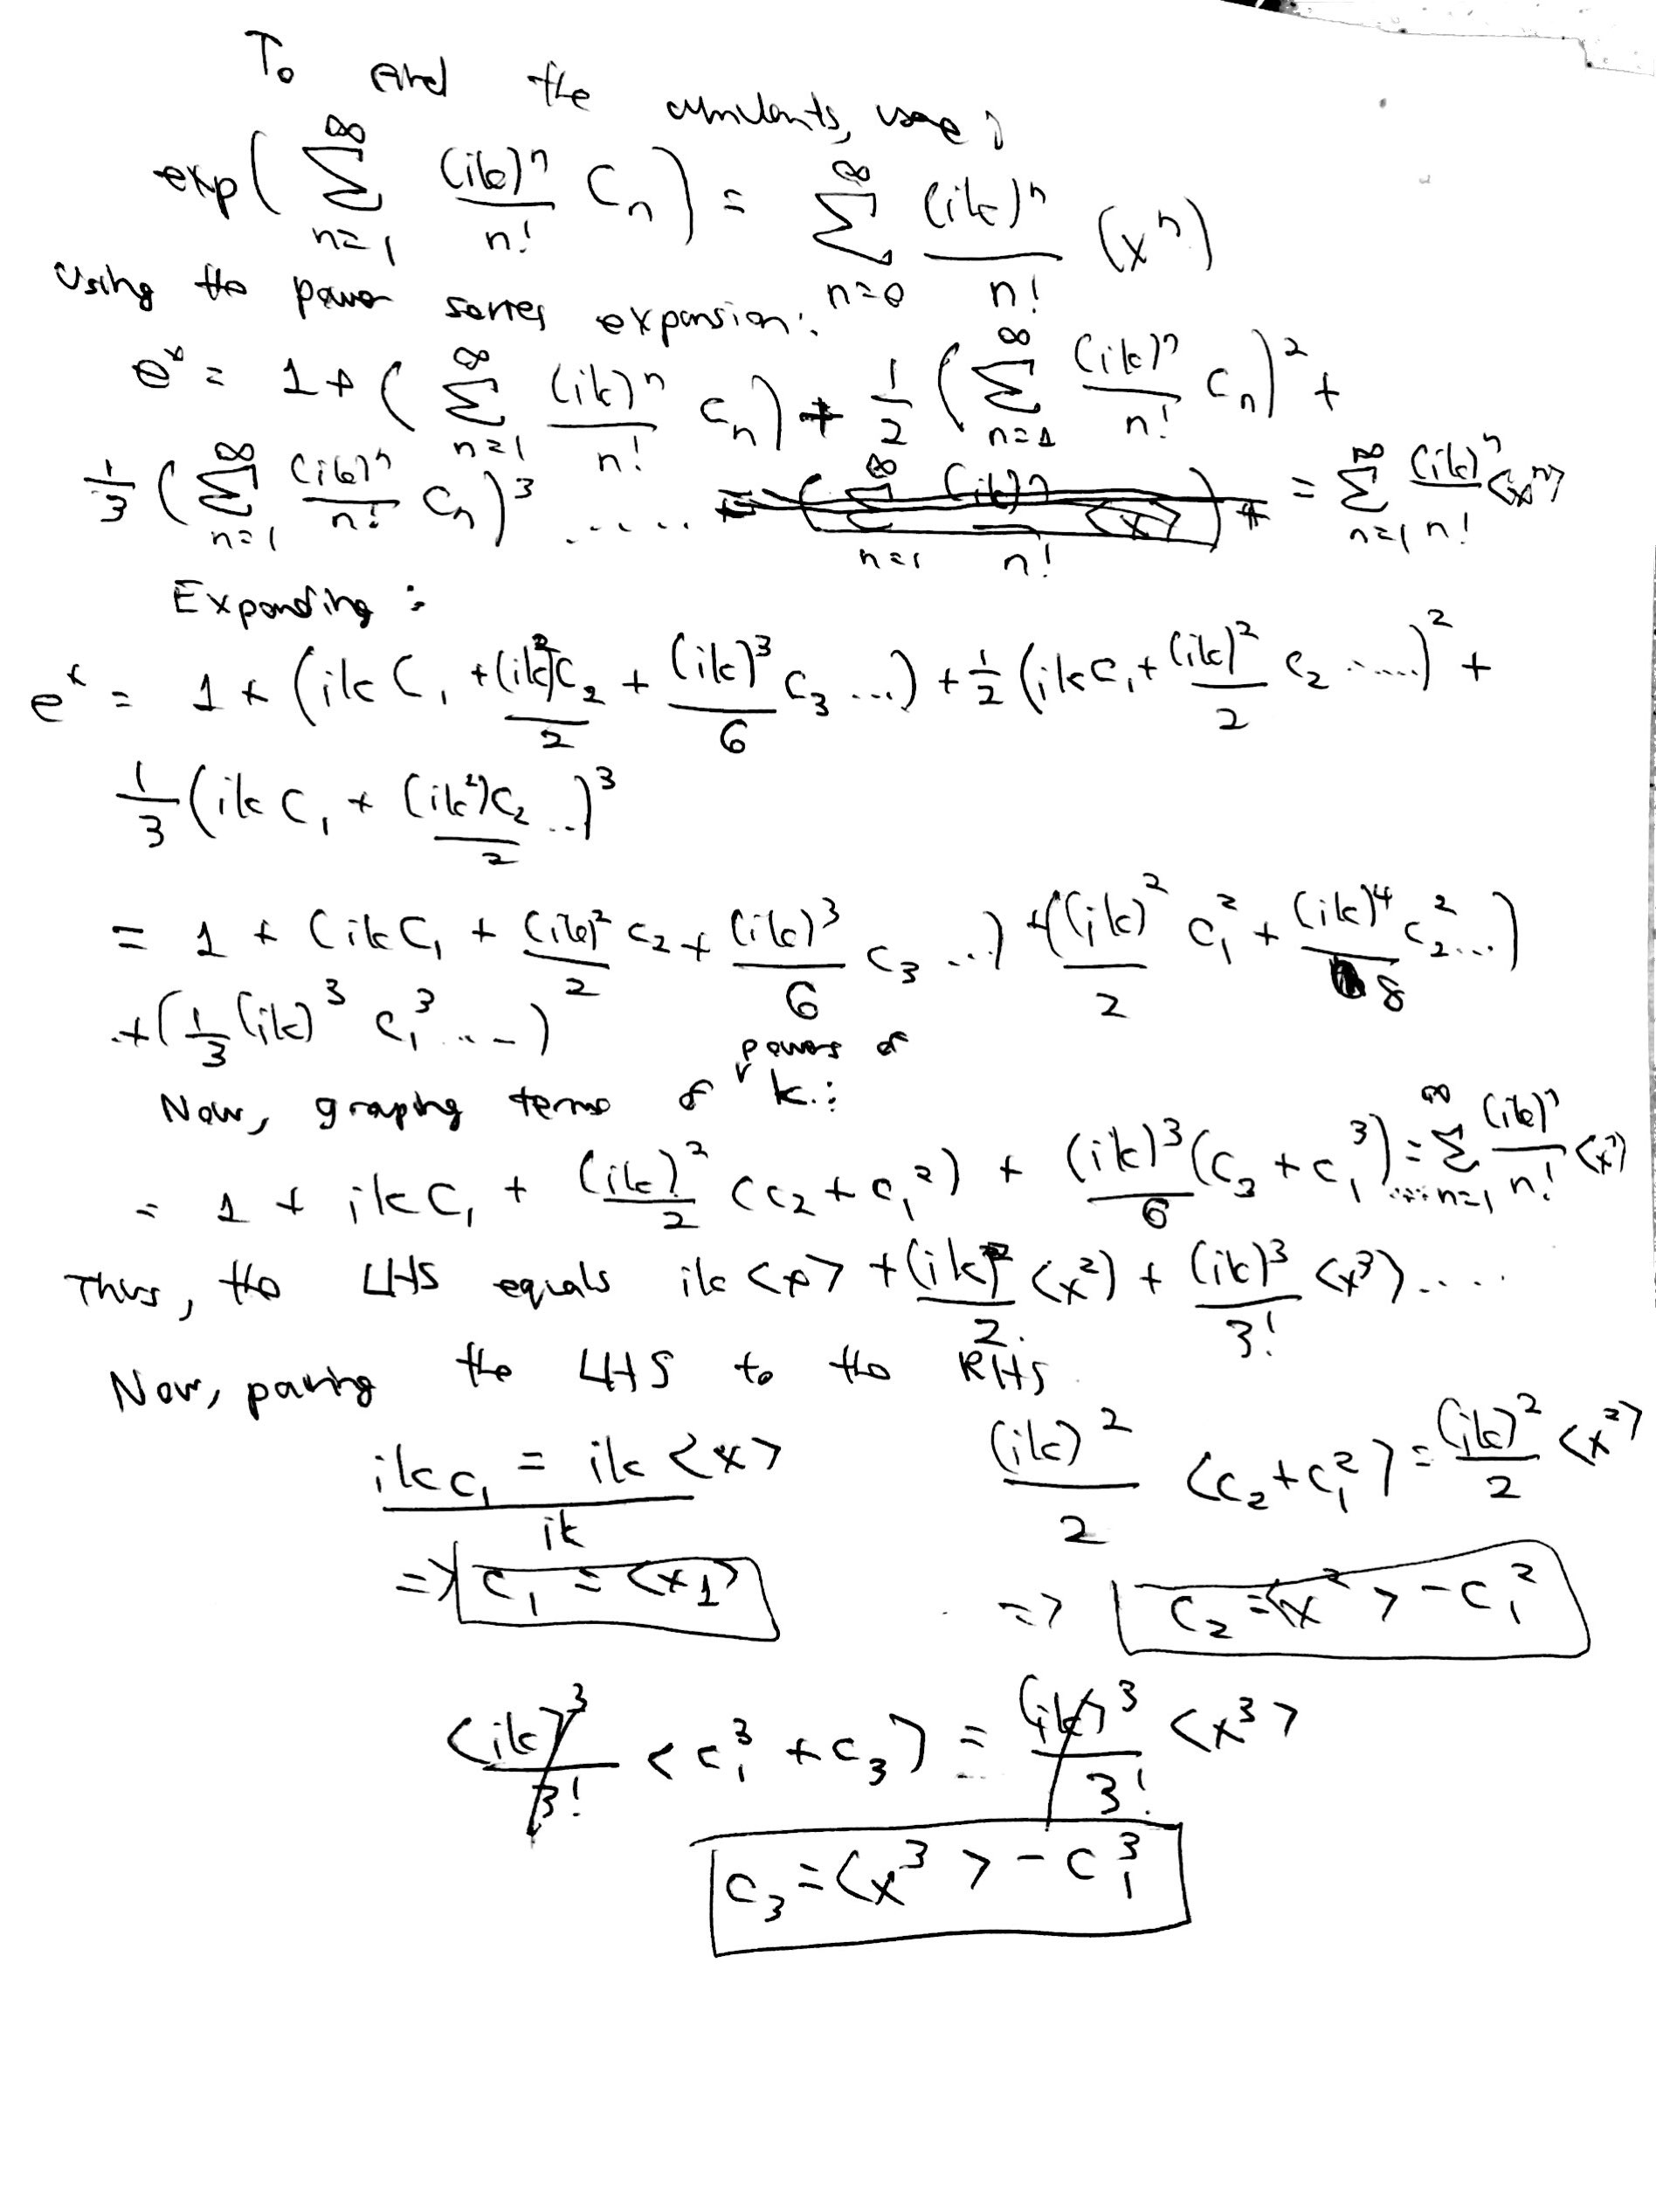 To find the cumulants, use :
exp( ∑_{n=1}^{∞} (ik)^n/n! C_n ) = ∑_{n=0}^{∞} (ik)^n/n! (x^n)
Using the power series expansion:
e^x = 1 + ( ∑_{n=1}^{∞} (ik)^n/n! C_n ) + 1/2 ( ∑_{n=1}^{∞} (ik)^n/n! C_n )^2 +
1/3 ( ∑_{n=1}^{∞} (ik)^n/n! C_n )^3 ..... = ∑_{n=1}^{∞} (ik)^n/n! <x^n>
Expanding :
e^x = 1 + (ik C_1 + (ik)^2 C_2/2 + (ik)^3/6 C_3 ...) + 1/2 (ik C_1 + (ik)^2/2 C_2 .....)^2 +
1/3 (ik C_1 + (ik^2)C_2/2 ...)^3
= 1 + (ik C_1 + (ik)^2/2 C_2 + (ik)^3/6 C_3 ...) + ((ik)^2/2 C_1^2 + (ik)^4/8 C_2^2 ...)
+ (1/3 (ik)^3 C_1^3 ...)
Now, grouping terms of powers of k :
= 1 + ik C_1 + (ik)^2/2 (C_2 + C_1^2) + (ik)^3/6 (C_3 + C_1^3) .... = ∑_{n=1}^{∞} (ik)^n/n! <x^n>
Thus, the LHS equals ik <x> + (ik)^2/2 <x^2> + (ik)^3/3! <x^3> ....
Now, paring the LHS to the RHS
ik C_1 = ik <x> / ik
(ik)^2/2 <C_2 + C_1^2> = (ik)^2/2 <x^2>
=> C_1 = <x_1>
=> C_2 = <x^2> - C_1^2
(ik)^3/3! <C_1^3 + C_3> = (ik)^3/3! <x^3>
C_3 = <x^3> - C_1^3